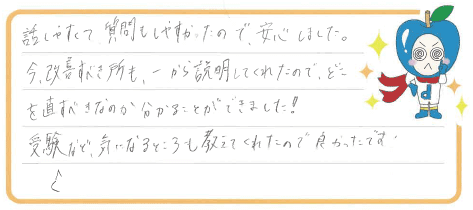 話しやすくて、質問もしやすかったので、安心しました。
今、改善すべき所も、一から説明してくれたので、どこ
を直すべきなのか分かることができました!
受験など、気になるところも教えてくれたので良かったです
d